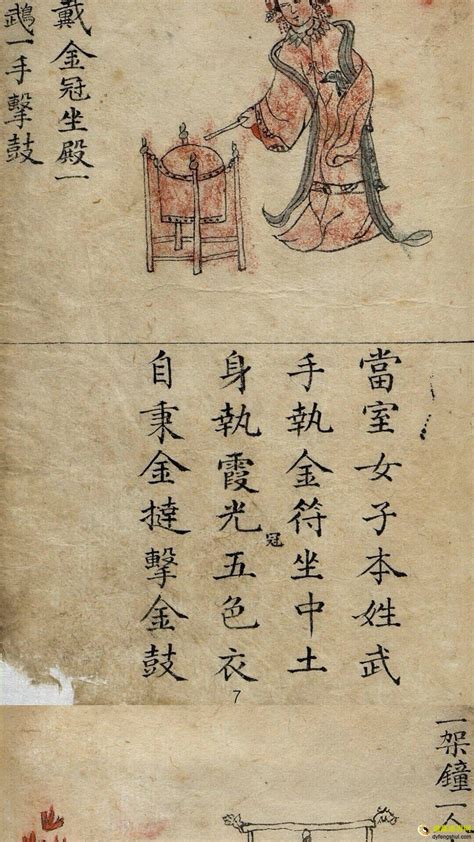 戴金冠坐殿一
鵡一手擊鼓
當室女子本姓武
手執金符坐中土
冠
身執霞光五色衣
自秉金撻擊金鼓
7
一架鐘一人
dyfengshui.com